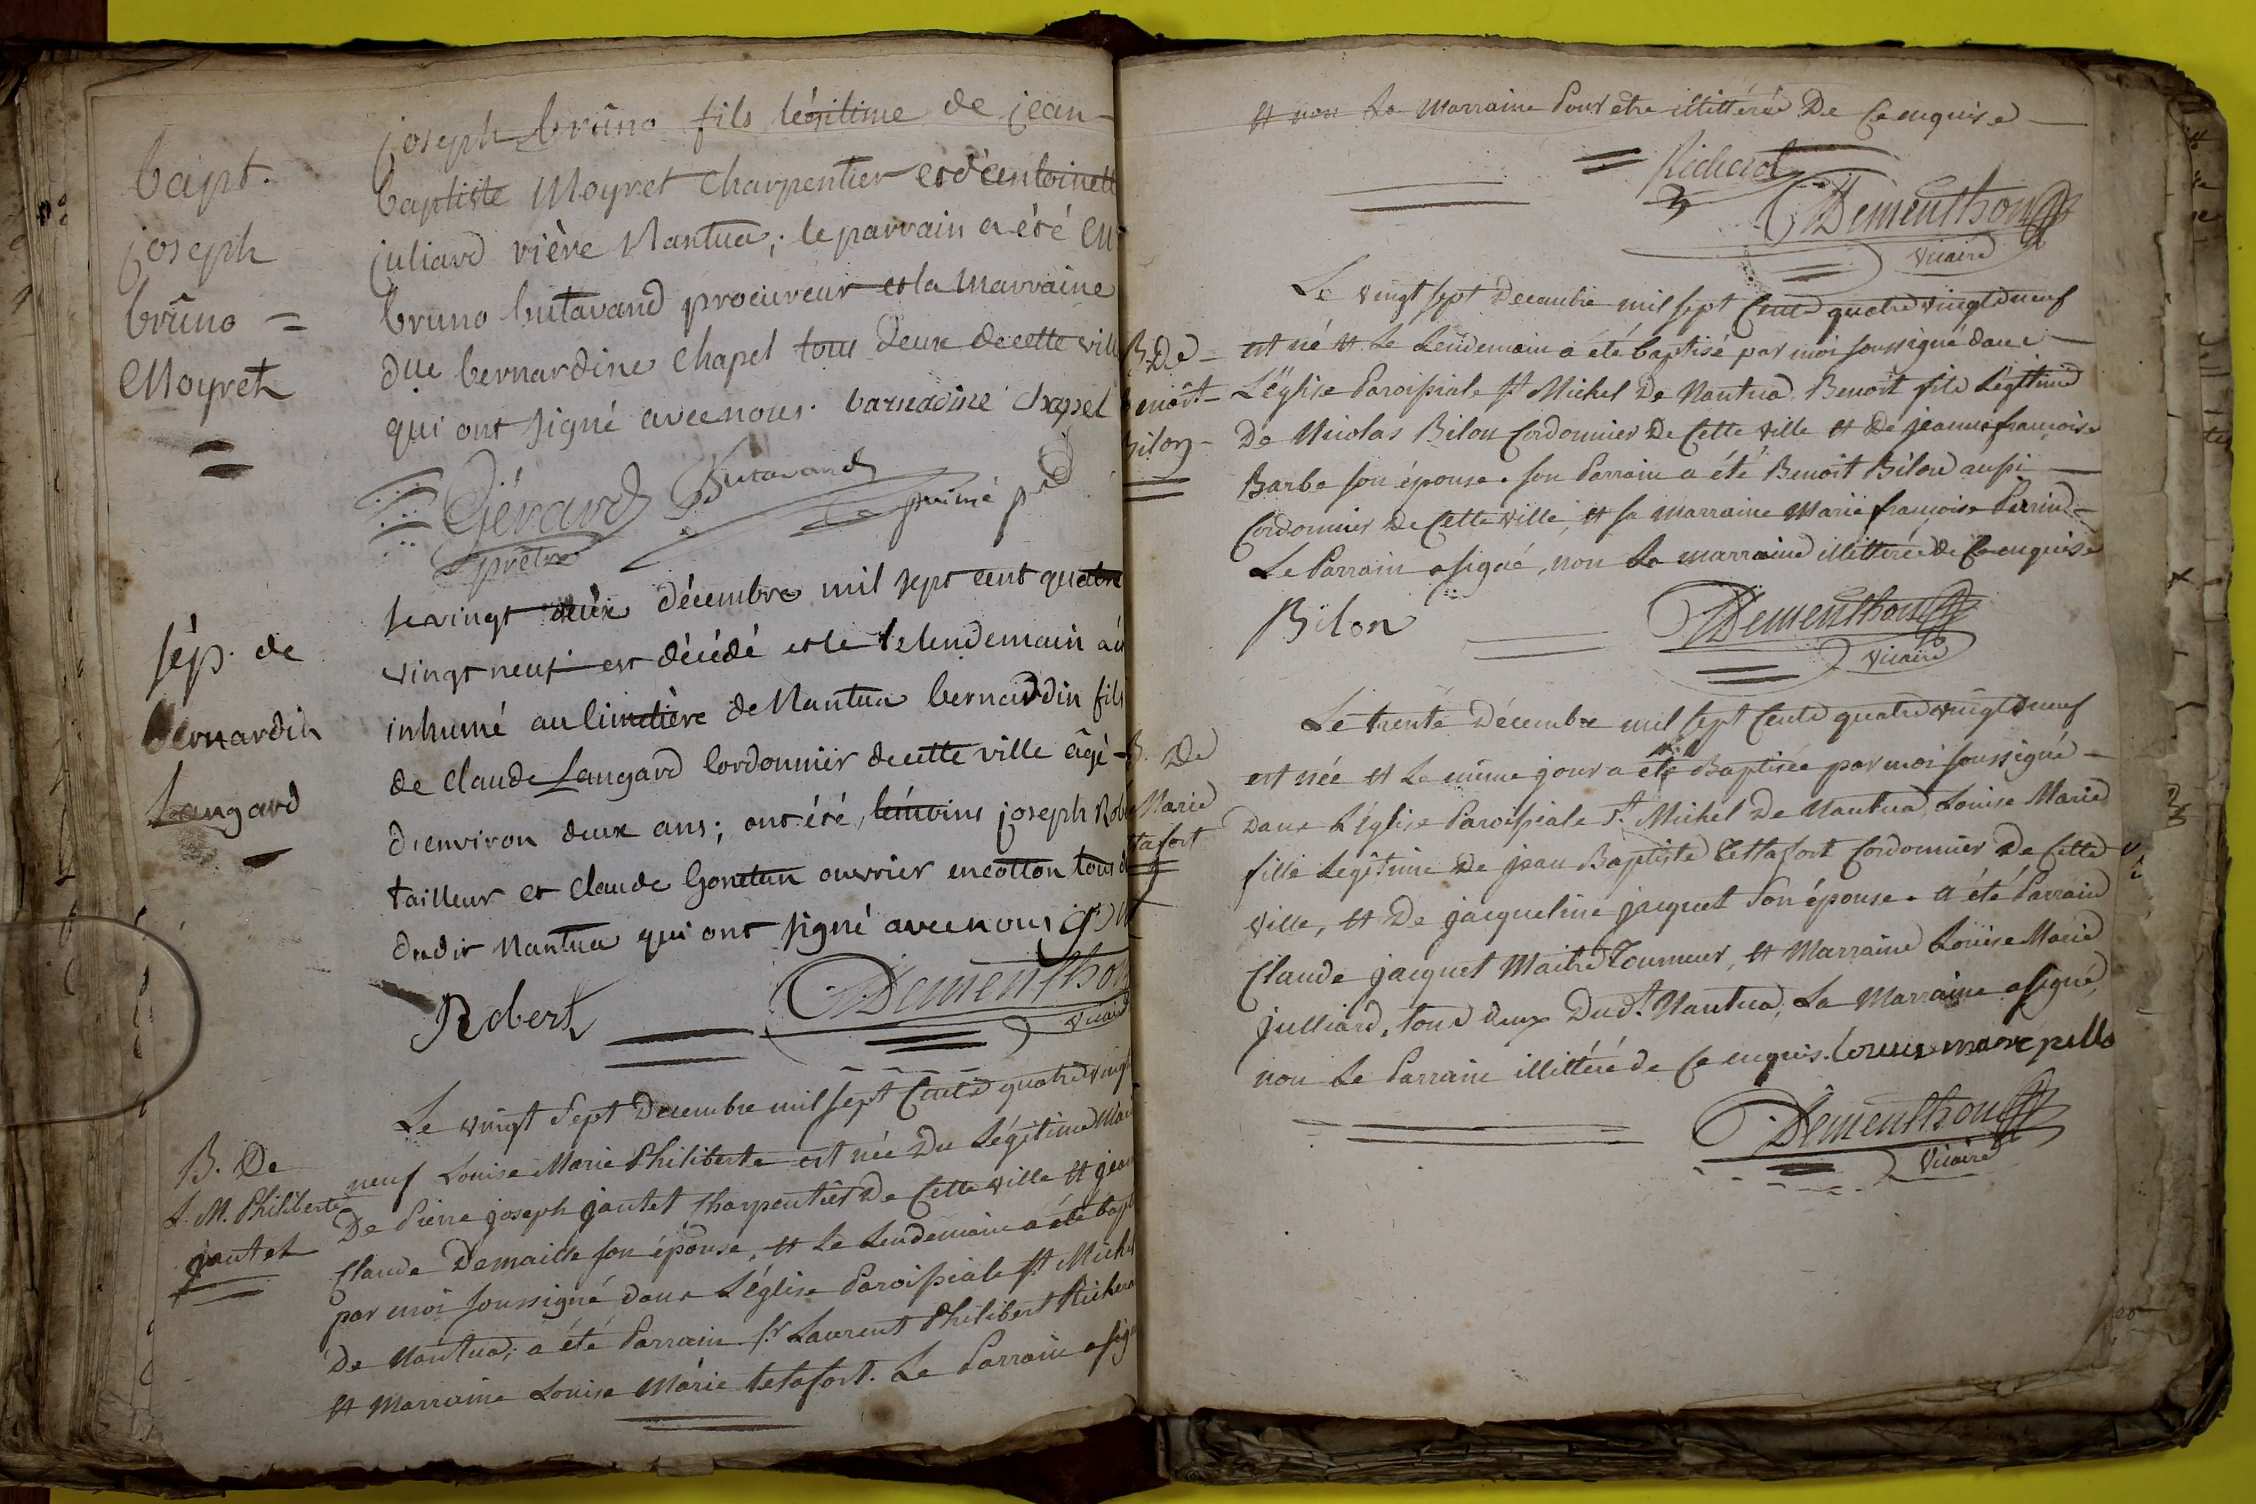 bapt.
joseph
brûno =
Moyret
joseph brûno fils légitime de jean-
baptiste Moyret charpentier et d'antoinette
juliard rière Nantua; le parrain a été
bruno butavand procureur et la marraine
dlle bernardine chapel tous deux de cette ville
qui ont signé avec nous. barnadine chapel
Gérard Butavand
prêtre
sép. de
Bernardin
Langard
le vingt deux décembre mil sept cent quatre
vingt neuf est décédé et le lendemain a été
inhumé au cimetière de Nantua bernarddin fils
de claude Langard Cordonnier de cette ville âgé
d'environ deux ans; ont été témoins joseph Robert
tailleur et claude ouvrier en cotton tous
dudit Nantua qui ont signé avec nous
Robert Dementhon
vicaire
B. De
L. M. Philiberte
jantet
Le vingt Sept Decembre mil sept Cents quatre vingt
neuf Louise Marie Philiberte est née Du Légitime
De Pierre joseph jantet charpentier De Cette ville et
Claude Demaille son épouse, et Le Lendemain a été
par moi soussigné dans L'église Paroissiale St Michel
De Nantua; a été Parrain sr Laurent Philibert
et Marraine Louise Marie tetafort. Le Parrain a signé
et non La Marraine Pour etre illittérée De Ce enquise
Richerot
Dementhon
vicaire
B. De
Benoît
Bilon
Le vingt sept Decembre mil sept Cents quatre vingt neuf
est né et Le Lendemain a été baptisé par moi soussigné dans
L'église Paroissiale St Michel De Nantua Benoit fils Légitime
De Nicolas Bilon Cordonnier De Cette ville et De jeanne françoise
Barbe son épouse. son Parrain a été Benoit Bilon aussi
Cordonnier De Cette ville, et sa marraine Marie françoise Perrin
Le Parrain a signé, non La marraine illittérée de Ce enquise
Bilon Dementhon
vicaire
B. De
Marie
tafort
Le trente Décembre mil sept Cents quatre vingt neuf
est née et Le même jour a été Baptisée par moi soussigné
Dans L'église Paroissiale St. Michel De Nantua, Louise Marie
fille Légitime De jean Baptiste Tettafort Cordonnier De Cette
ville, et De jacqueline jacquet son épouse. a été Parrain
Claude jacquet Maitre Tourneur, et Marraine Louise Marie
julliard, tous deux Dud. Nantua, La Marraine a signé,
non Le Parrain illittéré de Ce enquis.
Dementhon
Vicaire